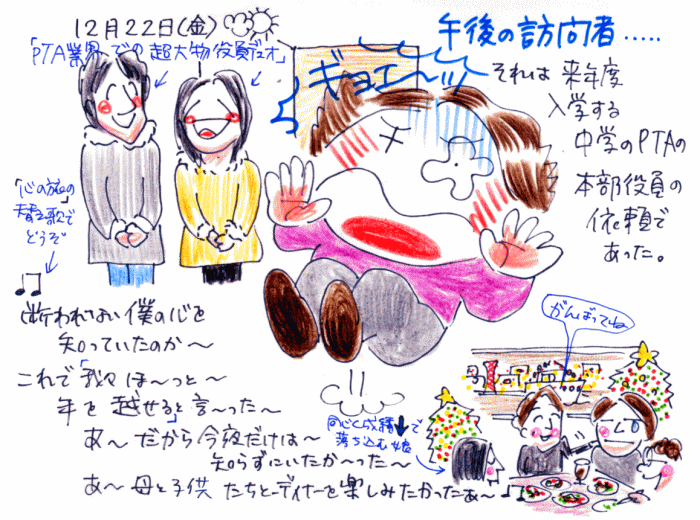 12月22日(金)
「PTA業界での超大物役員デュオ」
午後の訪問者.....
ギョエ〜ッ
それは来年度
入学する
中学のPTAの
本部役員の
依頼で
あった。
「心の旅」の
替え歌で
どうぞ
断われない僕の心を
知っていたのか〜
これで「我々ほ〜っと〜
年を越せる」と言〜った〜
あ〜だから今夜だけは〜
知らずにいたか〜った〜
あ〜母と子供たちとディナーを楽しみたかったあ〜
同じく成績↓で
落ち込む娘
がんばってね